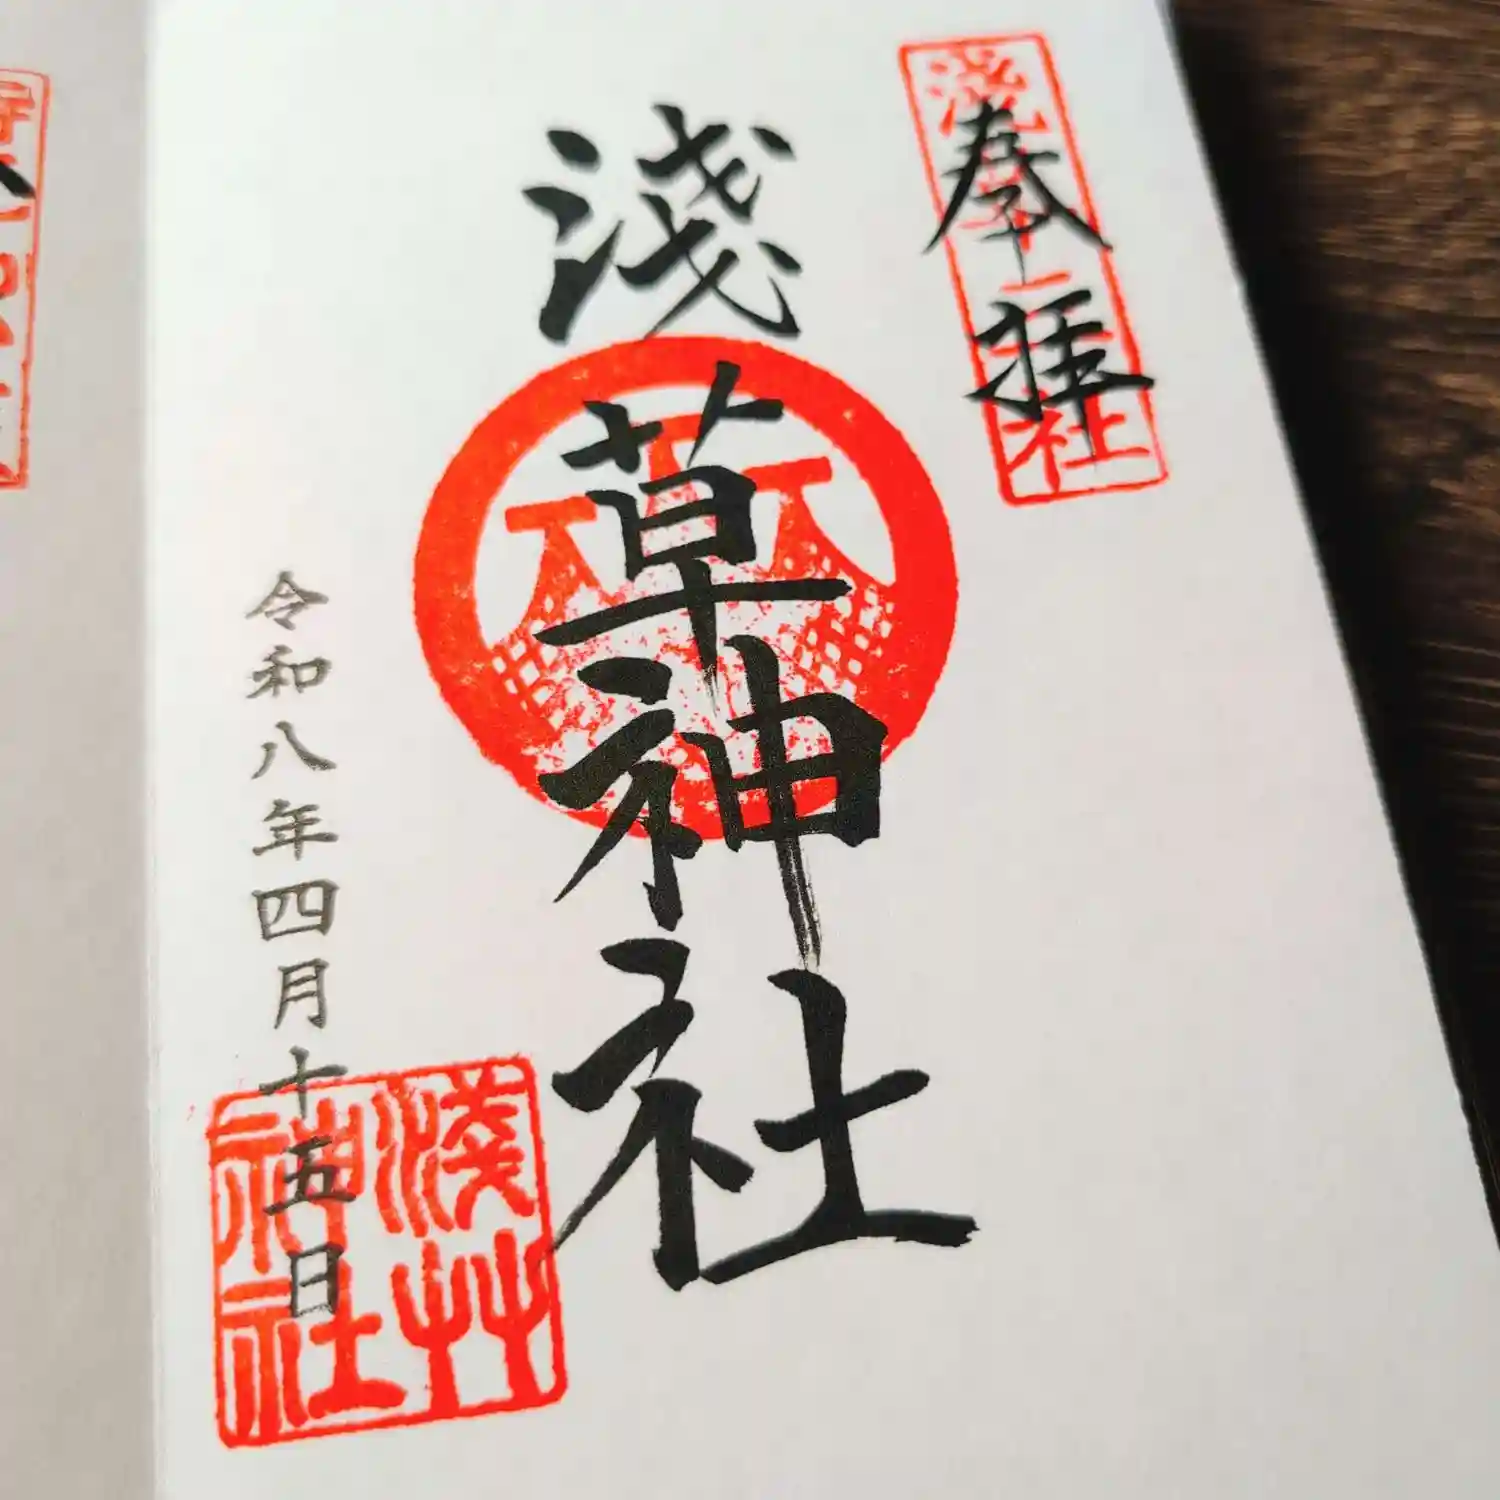 奉拝
浅草神社
浅草神社
令和八年四月十五日
浅草
神社